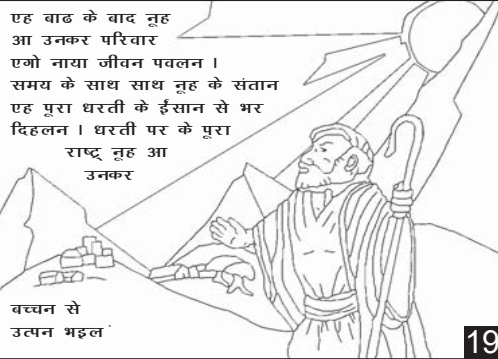 एह बाढ के बाद नूह
आ उनकर परिवार
एगो नाया जीवन पवलन ।
समय के साथ साथ नूह के संतान
एह पूरा धरती के ईंसान से भर
दिहलन । धरती पर के पूरा
राष्ट्र् नूह आ
उनकर
बच्चन से
उत्पन भइल
19